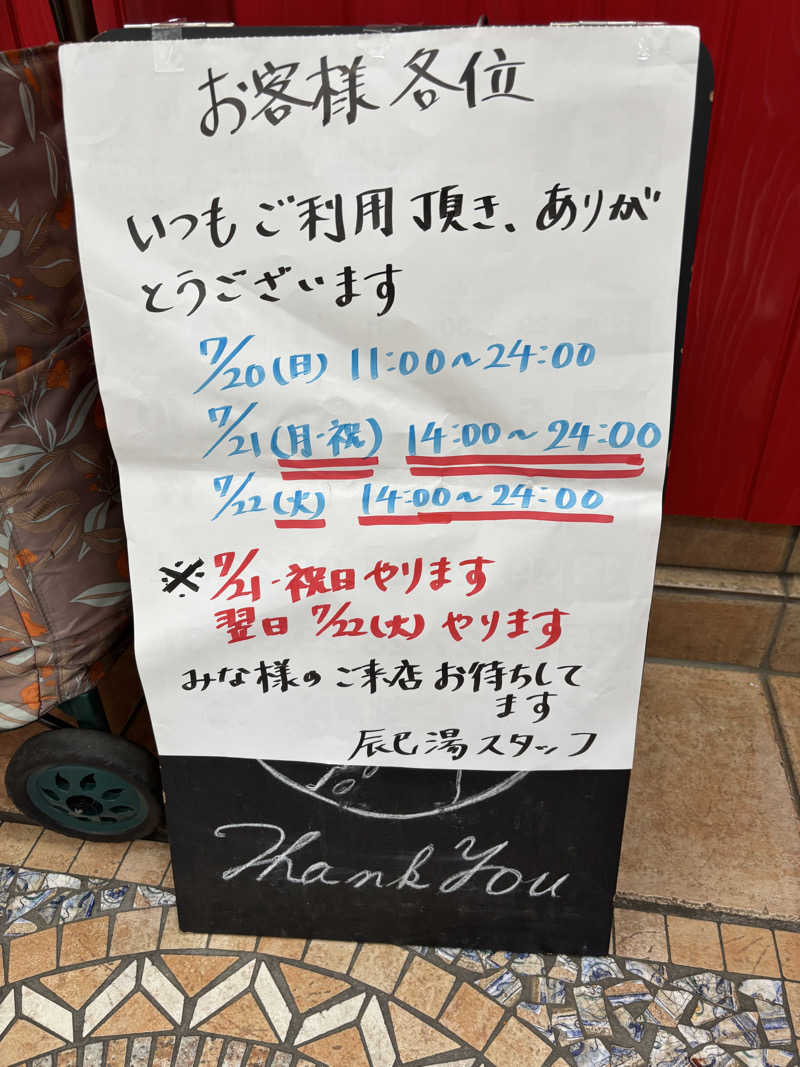 お客様各位
いつもご利用頂き、ありが
とうございます
7/20(日) 11:00〜24:00
7/21(月・祝) 14:00〜24:00
7/22(火) 14:00〜24:00
※7/21・祝日やります
翌日 7/22(火)やります
みな様のご来店お待ちして
ます
辰巳湯スタッフ
Thank You